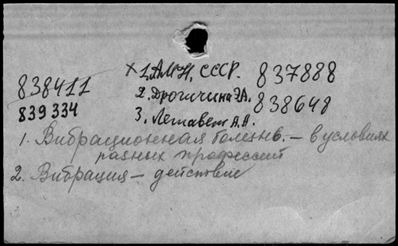 838411
839334
× 1. АМН, СССР. 837888
2. Дрогичина Э.А. 838648
3. Летавет А.А.
1. Вибрационная болезнь. – в условиях
разных профессий
2. Вибрация – действие